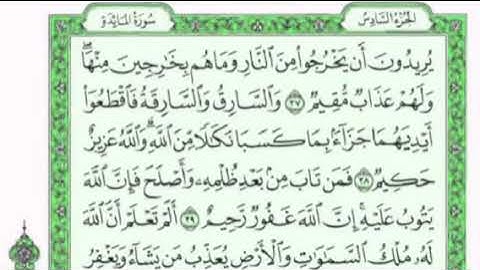 سُورَةُ المَائِدَةِ
الجُزْءُ السَّادِسُ
يُرِيدُونَ أَن يَخْرُجُوا۟ مِنَ ٱلنَّارِ وَمَا هُم بِخَٰرِجِينَ مِنْهَا ۖ
وَلَهُمْ عَذَابٌ مُّقِيمٌ ٣٧ وَٱلسَّارِقُ وَٱلسَّارِقَةُ فَٱقْطَعُوٓا۟
أَيْدِيَهُمَا جَزَآءًۢ بِمَا كَسَبَا نَكَٰلًا مِّنَ ٱللَّهِ ۗ وَٱللَّهُ عَزِيزٌ
حَكِيمٌ ٣٨ فَمَن تَابَ مِنۢ بَعْدِ ظُلْمِهِۦ وَأَصْلَحَ فَإِنَّ ٱللَّهَ
يَتُوبُ عَلَيْهِ ۗ إِنَّ ٱللَّهَ غَفُورٌ رَّحِيمٌ ٣٩ أَلَمْ تَعْلَمْ أَنَّ ٱللَّهَ
لَهُۥ مُلْكُ ٱلسَّمَٰوَٰتِ وَٱلْأَرْضِ يُعَذِّبُ مَن يَشَآءُ وَيَغْفِرُ